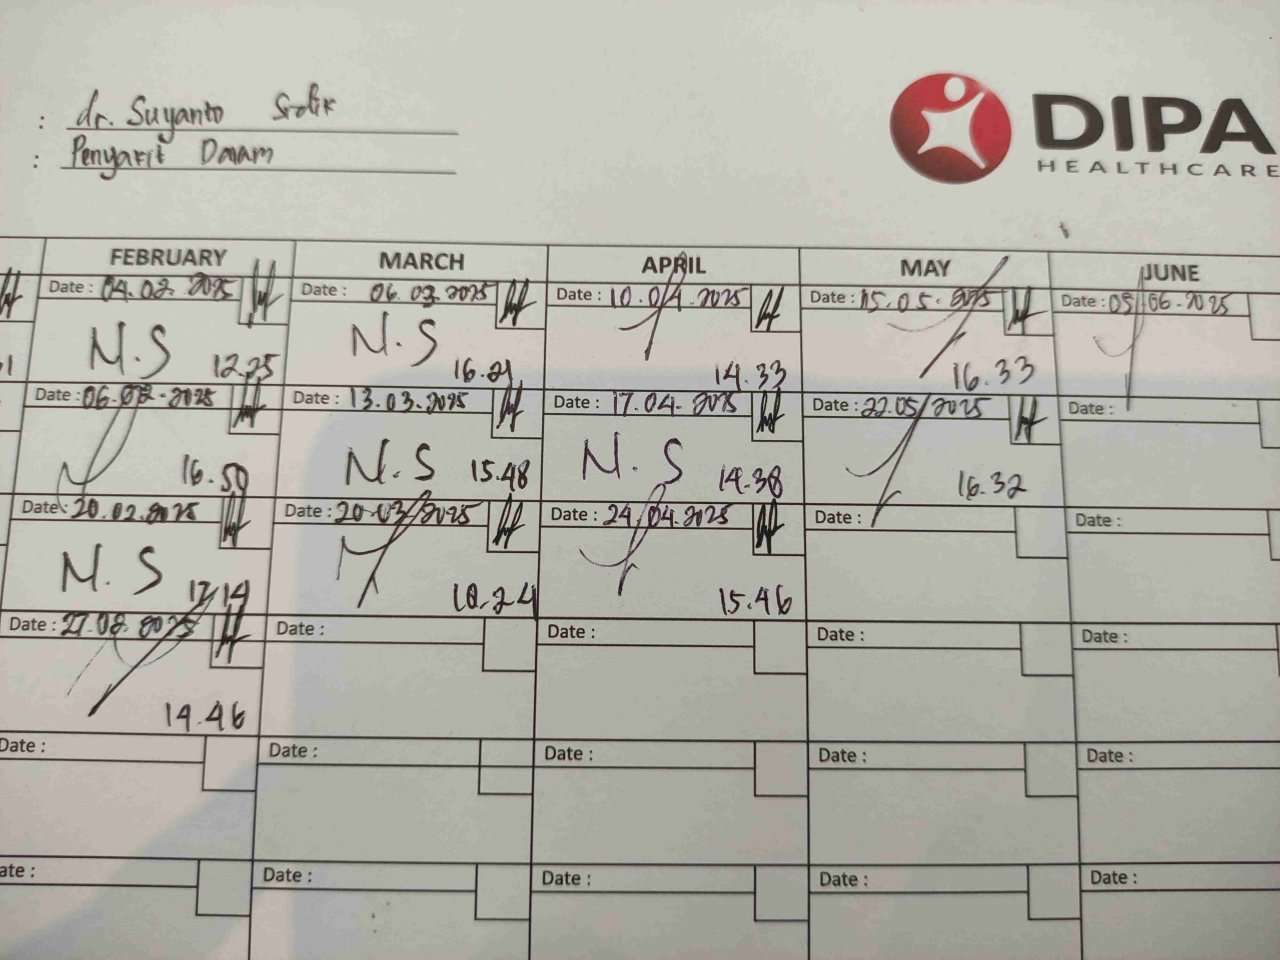 : dr. Suyanto Sidik
: Penyakit Dalam
DIPA
HEALTHCARE
FEBRUARY MARCH APRIL MAY JUNE
Date : 04.02.2025 Date : 06.03.2025 Date : 10.04.2025 Date : 15.05.2025 Date : 05.06.2025
N.S 12.25 N.S 16.21 14.33 16.33
Date : 06.02.2025 Date : 13.03.2025 Date : 17.04.2025 Date : 22.05.2025 Date :
16.50 N.S 15.48 N.S 14.38 16.32
Date : 20.02.2025 Date : 20.03.2025 Date : 24.04.2025 Date : Date :
N.S 17.14 10.24 15.46
Date : 27.02.2025 Date : Date : Date : Date :
14.46
Date : Date : Date : Date : Date :
ate : Date : Date : Date : Date :